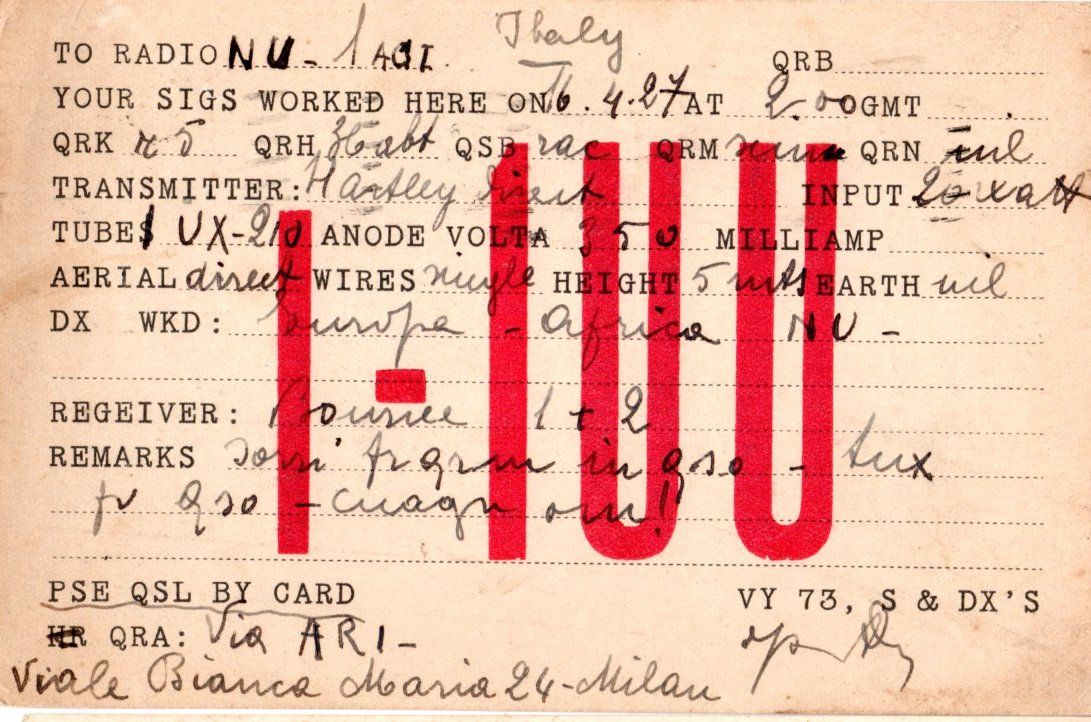 Italy
TO RADIO NU - 1 AOI QRB
YOUR SIGS WORKED HERE ON 16.4.27 AT 2.00 GMT
QRK r5 QRH 36 abt QSB rac QRM QRN nil
TRANSMITTER: Hartley direct INPUT 20 watt
TUBES 1 UX-210 ANODE VOLTA 350 MILLIAMP
AERIAL direct WIRES single HEIGHT 5 mts EARTH nil
DX WKD: Europa - Africa NU -
1-1UU
REGEIVER: Bourne 1+2
REMARKS sorri fr qrm in qso - tnx
fr qso - cuagn om!
PSE QSL BY CARD VY 73, S & DX'S
HR QRA: Via ARI - op
Viale Bianca Maria 24 - Milan